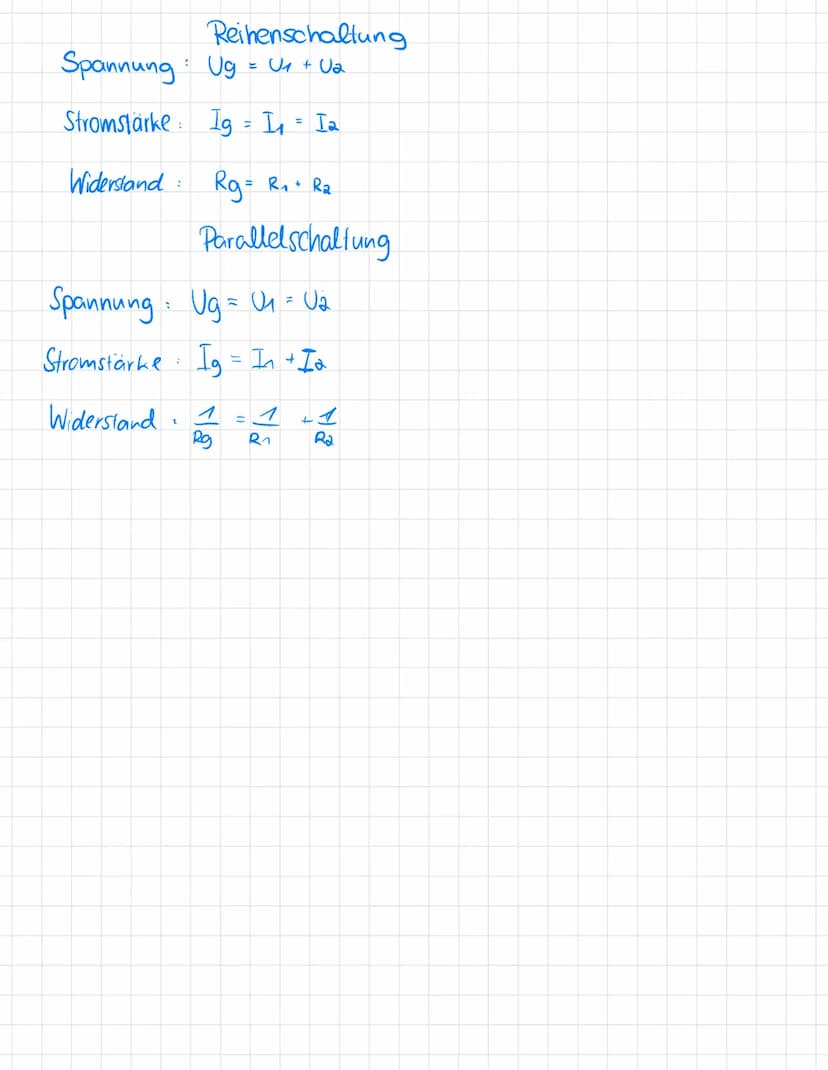 Reihenschaltung
Spannung: Ug = U1 + U2
Stromstärke: Ig = I1 = I2
Widerstand: Rg = R1 + R2
Parallelschaltung
Spannung: Ug = U1 = U2
Stromstärke: Ig = I1 + I2
Widerstand: 1/Rg = 1/R1 + 1/R2